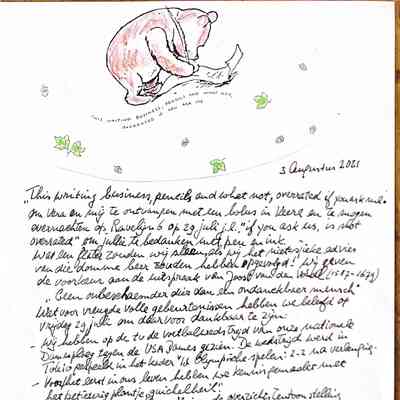 THIS WRITING BUSINESS, PENCILS AND WHAT NOT,
OVERRATED IF YOU ASK ME
3 Augustus 2021
„This writing business, pencils and what not, overrated if you ask me"
om Vera en mij te ontvangen met een bolus in Veere en te mogen
overnachten op Ravelijn 6 op 29 juli j.l. "if you ask us, is not
overrated" om jullie te bedanken met pen en inkt.
Wat een flaters zouden wij slaan als wij het niet wijze advies
van die domme beer zouden hebben opgevolgd! Wij geven
de voorkeur aan de uitspraak van Joost van den Vondel (1587-1679)
„Geen onbeschaemder dier dan een ondanckbaer mensch"
Wat voor vreugdevolle gebeurtenissen hebben we beleefd op
vrijdag 29 juli om daarvoor dankbaar te zijn:
- Wij hebben op de tv de voetbalwedstryd van onze nationale
Damesploeg tegen de USA Dames gezien. De wedstrijd werd in
Tokio gespeeld in het kader v.d. Olympische spelen: 2-2 na verlenging.
- Voor het eerst in ons leven hebben we kennis gemaakt met
het betoverig plantje guichelheil!
de overzichtentoonstelling